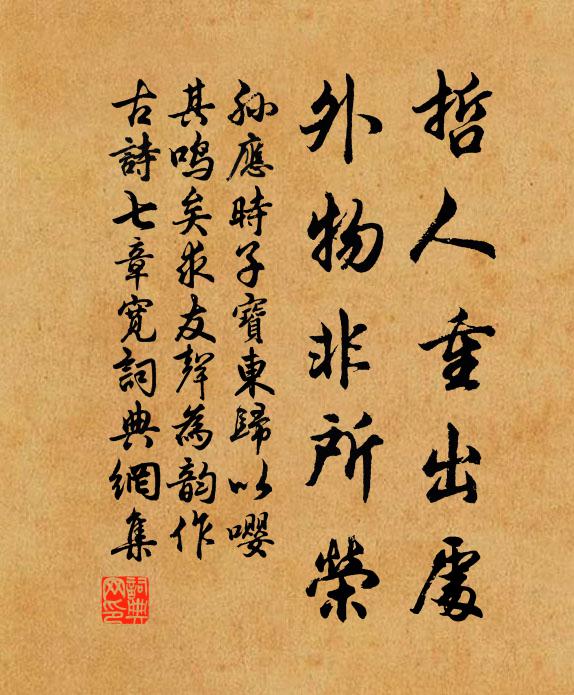 哲人重出處
外物非所榮
孫應時子寶東歸以嚶
其鳴矣求友聲為韵作
古詩七章寬詞典網集
詞典
网印